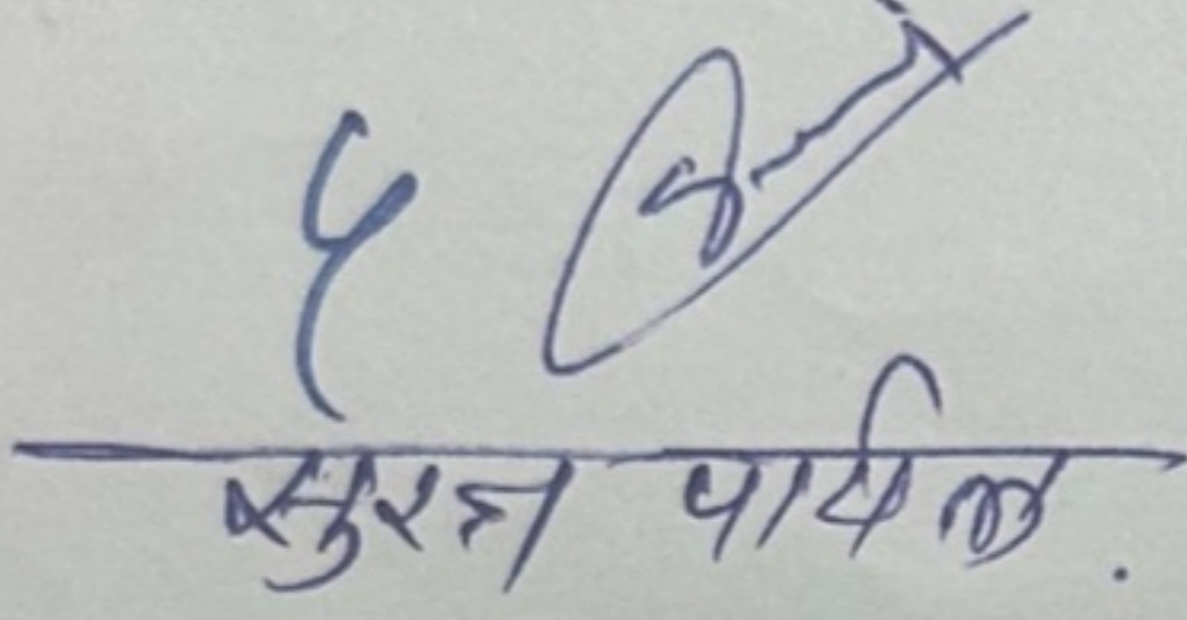 ५
सुरज पाटील.